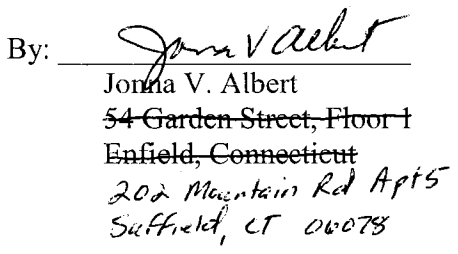 By: Jonna V Albert
Jonna V. Albert
54 Garden Street, Floor 1
Enfield, Connecticut
202 Mountain Rd Apt 5
Suffield, CT 06078